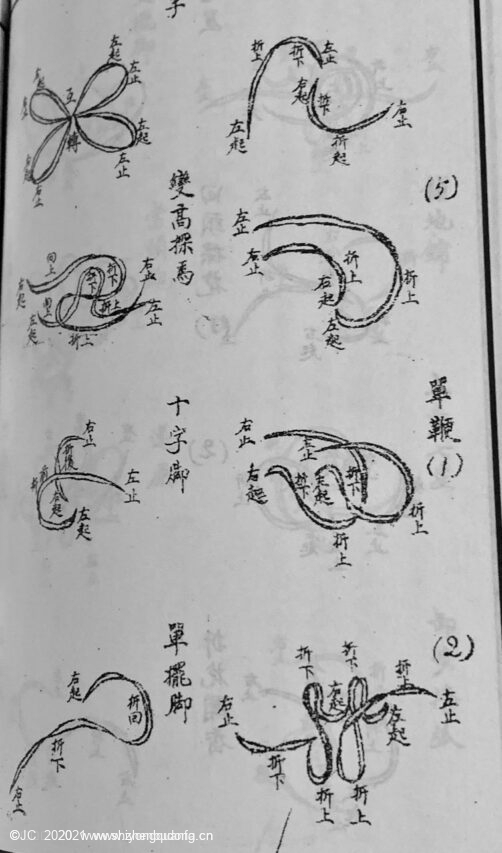 (5)
折上
折下
左止
左起
右起
折下
右止
折起
左止
左止
折上
右起
左起
折上
單鞭
(1)
右止
左止
右起
折下
左起
折下
折上
折上
(2)
折下
折下
右止
右起
折上
左止
左起
折下
折上
折上
左起
左止
左起
左止
右止
互
轉
變高探馬
回上
右起
折下
折下
右止
折上
左止
左起
折上
十字腳
右止
折後
左止
右起
左起
單擺腳
右起
折回
折下
右止
©JC 202021 www.shizhongudonfig.cn